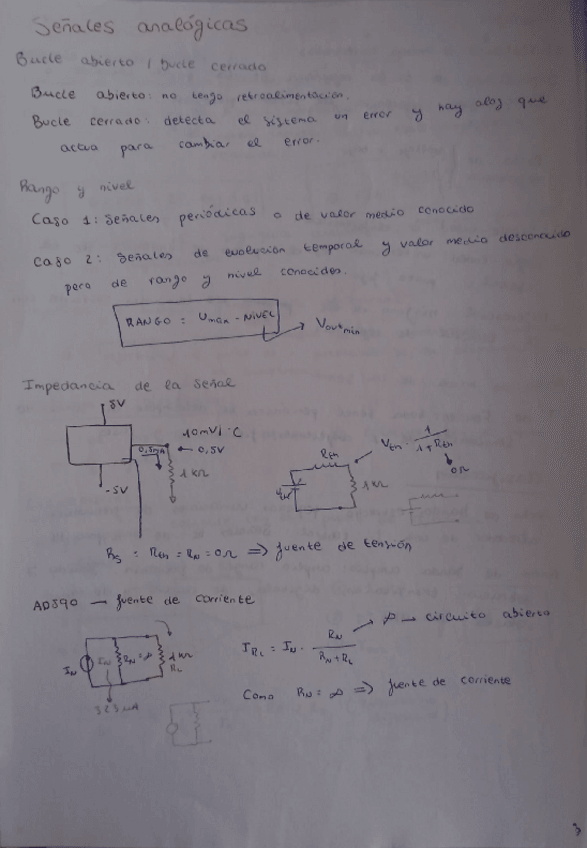 Señales analógicas
Bucle abierto / bucle cerrado
Bucle abierto: no tengo retroalimentación.
Bucle cerrado: detecta el sistema un error y hay algo que
actua para cambiar el error.
Rango y nivel
Caso 1: Señales periódicas o de valor medio conocido
Caso 2: Señales de evolución temporal y valor medio desconocido
pero de rango y nivel conocidos.
RANGO = Umáx - NIVEL → Vout min
Impedancia de la señal
5V
10mV/°C
0,5mA ← 0,5V
1 kΩ
-5V
Rth
1kΩ
Vth · 1/(1+Rth)
0Ω
RS = Rth = RN = 0Ω ⇒ fuente de tensión
AD590 — fuente de corriente
IN IN RN=∞ 1kΩ RL
323 μA
IRL = IN · RN/(RN+RL) → ∞ → circuito abierto
Como RN = ∞ ⇒ fuente de corriente
3